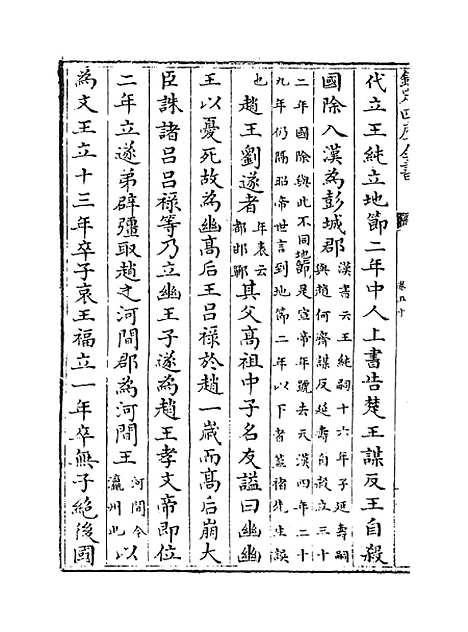 欽定四庫全書
卷五十
代立王純立地節二年中人上書告楚王謀反王自殺
國除入漢為彭城郡漢書云王純嗣十六年子延壽嗣與趙何齊謀反延壽自殺立三十
二年國除與此不同地節是宣帝年號去天漢四年二十九年仍隔昭帝世言到地節二年以下者蓋褚先生誤
也趙王劉遂者年表云都邯鄲其父髙祖中子名友諡曰幽幽
王以憂死故為幽髙后王呂祿於趙一歳而髙后崩大
臣誅諸呂呂祿等乃立幽王子遂為趙王孝文帝即位
二年立遂弟辟彊取趙之河間郡為河間王河間今瀛州也以
為文王立十三年卒子哀王福立一年卒無子絶後國